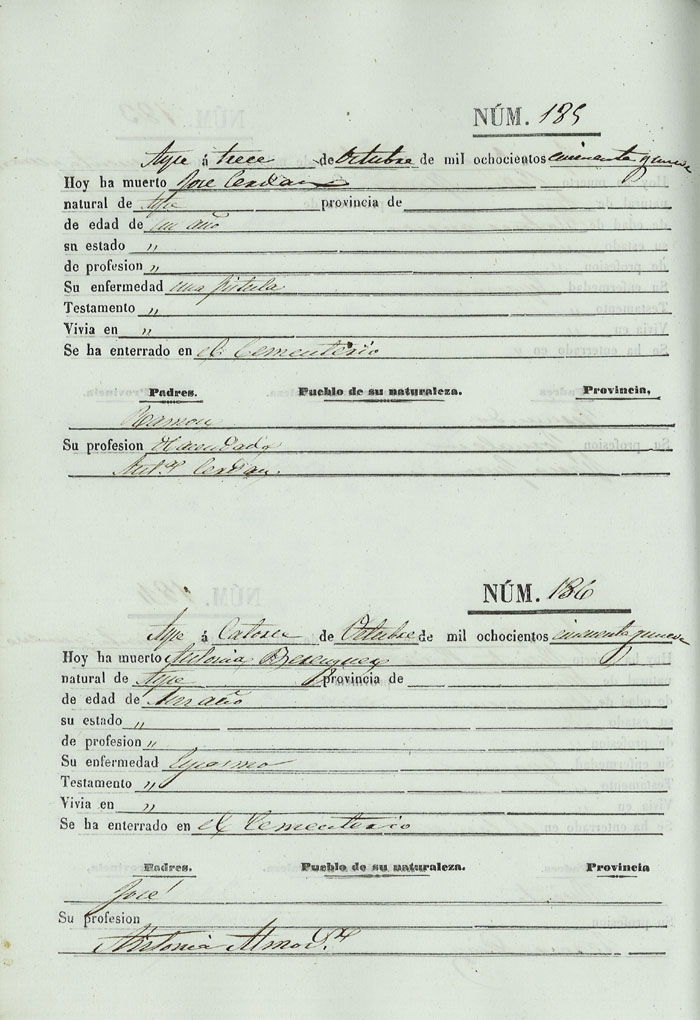 NÚM. 185
Aspe á trece de Octubre de mil ochocientos cincuenta y nueve
Hoy ha muerto Jose Cerdan
natural de Aspe provincia de
de edad de un año
su estado "
de profesion "
Su enfermedad una fistula
Testamento "
Vivia en "
Se ha enterrado en el Cementerio
Padres. Pueblo de su naturaleza. Provincia,
Ramon
Su profesion Hacendado
Ant.ª Cerdan.
NÚM. 186
Aspe á Catorce de Octubre de mil ochocientos cincuenta y nueve
Hoy ha muerto Antonia Berenguer
natural de Aspe provincia de
de edad de un año
su estado "
de profesion "
Su enfermedad Espasmo
Testamento "
Vivia en "
Se ha enterrado en el Cementerio
Padres. Pueblo de su naturaleza. Provincia
José
Su profesion
Antonia